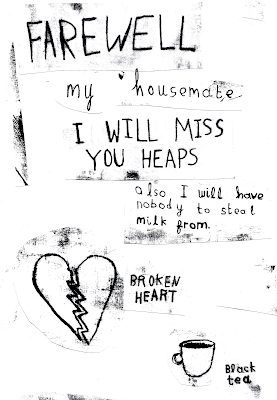 FAREWELL
my housemate
I WILL MISS
YOU HEAPS
also I will have
nobody to steal
milk from.
BROKEN
HEART
Black
tea